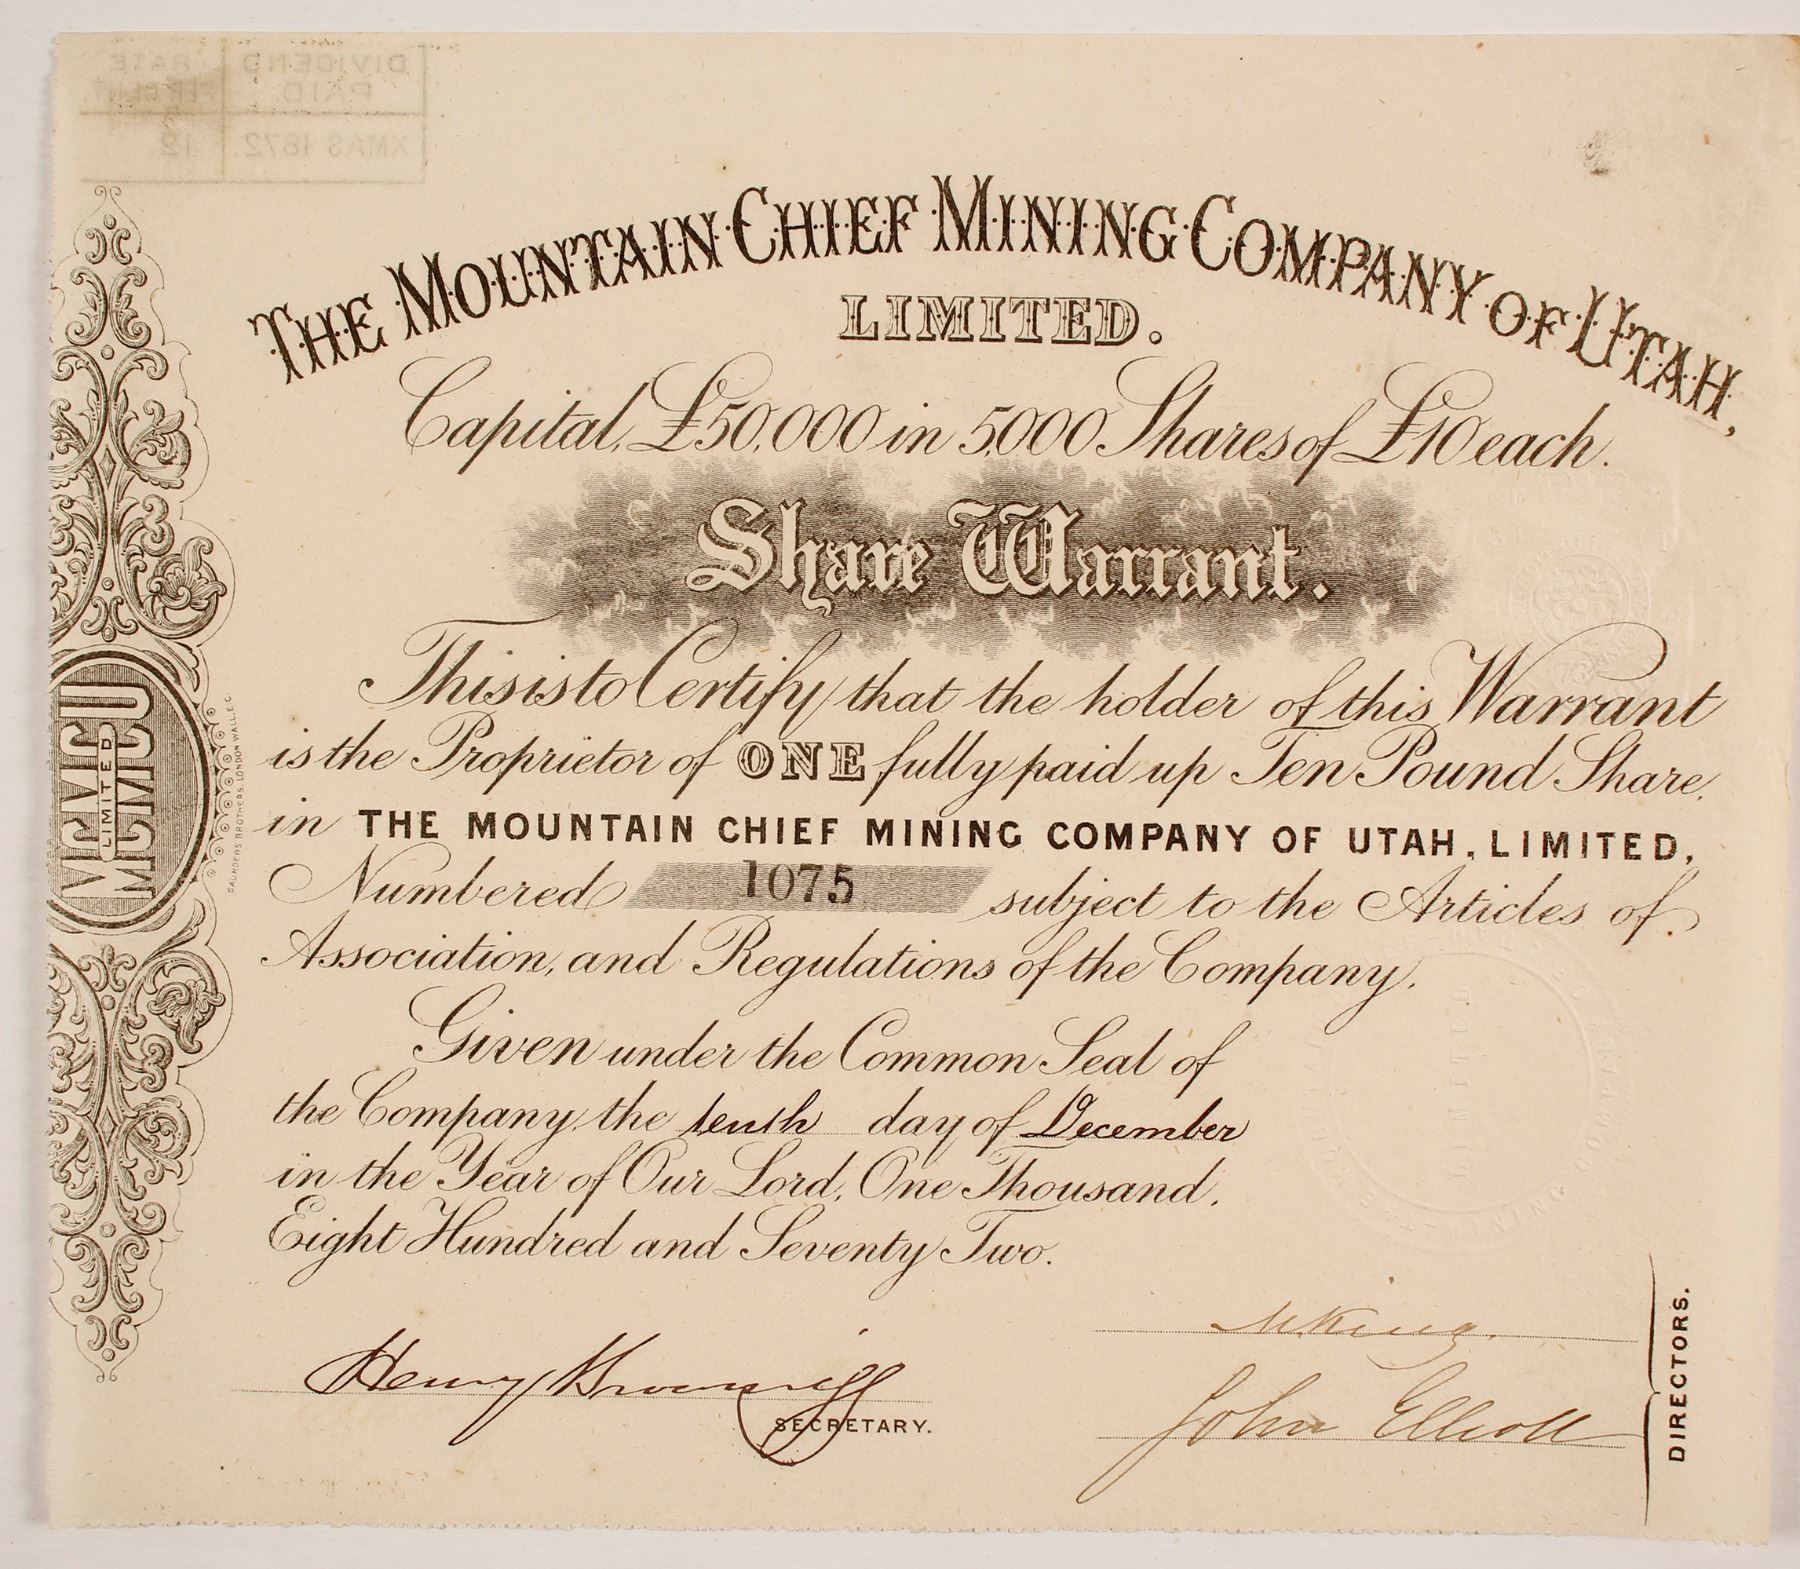 DIVIDEND PAID RATE PERCENT
XMAS 1872. 12.
THE MOUNTAIN CHIEF MINING COMPANY OF UTAH,
LIMITED.
Capital, £50,000 in 5,000 Shares of £10 each.
Share Warrant.
This is to Certify that the holder of this Warrant
is the Proprietor of ONE fully paid up Ten Pound Share,
in THE MOUNTAIN CHIEF MINING COMPANY OF UTAH, LIMITED,
Numbered 1075 subject to the Articles of
Association, and Regulations of the Company.
Given under the Common Seal of
the Company, the tenth day of December
in the Year of Our Lord, One Thousand,
Eight Hundred and Seventy Two.
Henry
SECRETARY.
King
John Elliott
DIRECTORS.
MCMCU
LIMITED
SAUNDERS BROTHERS, LONDON WALL, E.C.